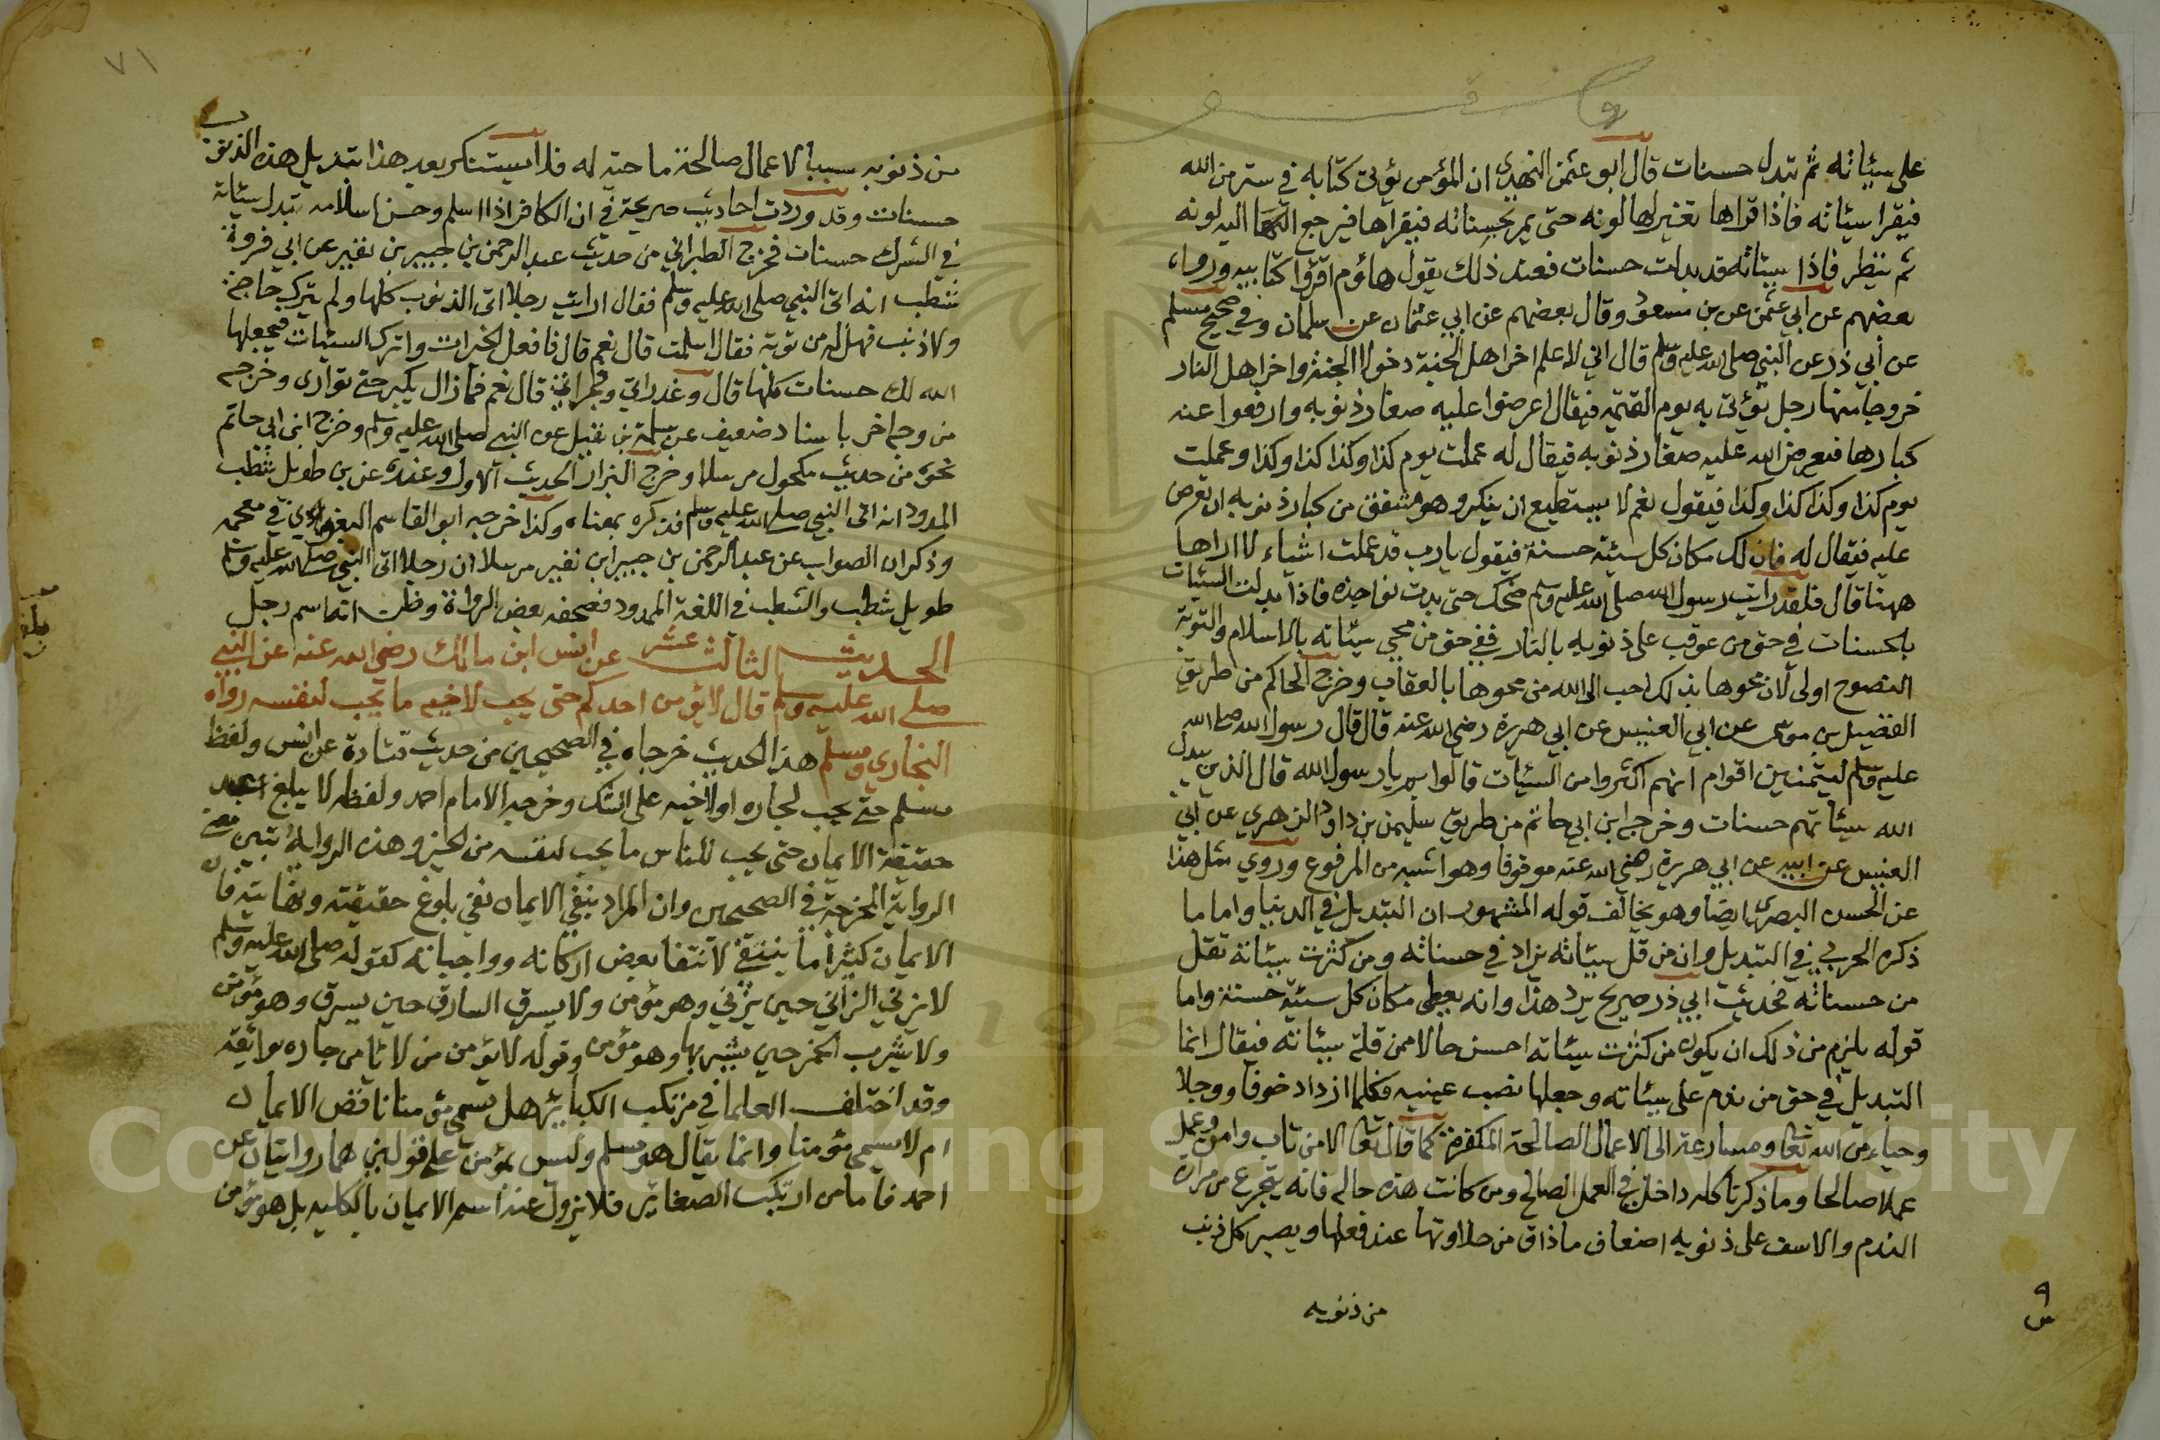 على سيئاته ثم تبدل حسنات قال ابو عثمن النهدي ان المؤمن يؤتى كتابه في ستر من الله
فيقرا سيئاته فاذا قراها تغير لها لونه حتى يمر بحسناته فيقراها فيرجع اليه لونه
ثم ينظر فاذا سيئاته قد بدلت حسنات فعند ذلك يقول هاؤم اقرؤا كتابيه ورواه
بعضهم عن ابي عثمن عن بن مسعود وقال بعضهم عن ابي عثمان عن سلمان وفي صحيح مسلم
عن أبي ذر عن النبي صلى الله عليه وسلم قال اني لاعلم اخر اهل الجنة دخولا الجنة واخر اهل النار
خروجا منها رجل يؤتى به يوم القيمة فيقال اعرضوا عليه صغار ذنوبه وارفعوا عنه
كبارها فيعرض الله عليه صغار ذنوبه فيقال له عملت يوم كذا وكذا كذا وكذا وعملت
يوم كذا وكذا كذا وكذا فيقول نعم لا يستطيع ان ينكر وهو مشفق من كبار ذنوبه ان تعرض
عليه فيقال له فان لك مكان كل سيئة حسنة فيقول يارب قد عملت اشياء لا اراها
ههنا قال فلقد رايت رسول الله صلى الله عليه وسلم ضحك حتى بدت نواجذه فاذا بدلت السيئات
بالحسنات في حق من عوقب على ذنوبه بالنار ففي حق من محي سيئاته بالاسلام والتوبة
النصوح اولى لان محوها بذلك احب الى الله من محوها بالعقاب وخرج الحاكم من طريق
الفضيل بن موسى عن ابي العنبس عن ابي هريرة رضي الله عنه قال قال رسول الله صلى الله
عليه وسلم ليتمنين اقوام انهم اكثروا من السيئات قالوا بم يا رسول الله قال الذين بدل
الله سيئاتهم حسنات وخرجه ابن ابي حاتم من طريق سليمن بن داود الزهري عن ابي
العنبس عن ابيه عن ابي هريرة رضي الله عنه موقوفا وهو اشبه من المرفوع وروي مثل هذا
عن الحسن البصري ايضا وهو يخالف قوله المشهور ان التبديل في الدنيا واما ما
ذكره الحربي في التبديل وان من قل سيئاته يزاد في حسناته ومن كثرت سيئاته تقلل
من حسناته فحديث ابي ذر صريح يرد هذا وانه يعطى مكان كل سيئة حسنة واما
قوله يلزم من ذلك ان يكون من كثرت سيئاته احسن حالا ممن قلة سيئاته فيقال انما
التبديل في حق من ندم على سيئاته وجعلها نصب عينيه فكلما ازداد خوفا ووجلا
وحياء من الله تعا ومسارعة الى الاعمال الصالحة المكفرة كما قال تعا الا من تاب وامن وعمل
عملا صالحا وما ذكرنا كله داخل في العمل الصالح ومن كانت هذه حاله فانه يتجرع من مرارة
الندم والاسف على ذنوبه اضعاف ما ذاق من حلاوتها عند فعلها ويصير كل ذنب
من ذنوبه
٧١
من ذنوبه سببا لاعمال صالحة ماحية له فلا يستنكر بعد هذا تبديل هذه الذنوب
حسنات وقد وردت احاديث صريحة في ان الكافر اذا اسلم وحسن اسلامه تبدل سيئاته
في الشرك حسنات فخرج الطبراني من حديث عبد الرحمن بن جبير بن نفير عن ابي فروة
شطب انه اتى النبي صلى الله عليه وسلم فقال ارايت رجلا اتى الذنوب كلها ولم يترك حاجة
ولا ذنب فهل له من توبة فقال اسلمت قال نعم قال فافعل الخيرات واترك السيئات فيجعلها
الله لك حسنات كلها قال وغدراتي وفجراتي قال نعم فما زال يكبر حتى توارى وخرجه
من وجه اخر باسناد ضعيف عن سلمة بن نفيل عن النبي صلى الله عليه وسلم وخرج ابن ابي حاتم
نحوه من حديث مكحول مرسلا وخرج البزار الحديث الاول وعنده عن بن طويل شطب
الممدود انه اتى النبي صلى الله عليه وسلم فذكره بمعناه وكذا خرجه ابو القاسم البغوي في معجمه
وذكر ان الصواب عن عبد الرحمن بن جبير ابن نفير مرسلا ان رجلا اتى النبي صلى الله عليه وسلم
طويل شطب والشطب في اللغة الممدود فصحفه بعض الرواة وظن انه اسم رجل
الحديث الثالث عشر عن انس ابن مالك رضي الله عنه عن النبي
صلى الله عليه وسلم قال لا يؤمن احدكم حتى يحب لاخيه ما يحب لنفسه رواه
البخاري ومسلم هذا الحديث خرجاه في الصحيحين من حديث قتادة عن انس ولفظ
مسلم حتى يحب لجاره او لاخيه على الشك وخرجه الامام احمد ولفظه لا يبلغ عبد
حقيقة الايمان حتى يحب للناس ما يحب لنفسه من الخير وهذه الرواية تبين معنى
الرواية المخرجة في الصحيحين وان المراد بنفي الايمان نفي بلوغ حقيقته ونهايته فان
الايمان كثيرا ما ينتفي لانتفا بعض اركانه وواجباته كقوله صلى الله عليه وسلم
لا يزني الزاني حين يزني وهو مؤمن ولا يسرق السارق حين يسرق وهو مؤمن
ولا يشرب الخمر حين يشربها وهو مؤمن وقوله لا يؤمن من لا يامن جاره بوائقه
وقد اختلف العلما في مرتكب الكبائر هل يسمى مؤمنا ناقص الايمان
ام لا يسمى مؤمنا وانما يقال هو مسلم وليس بمؤمن على قولين هما روايتان عن
احمد فاما من ارتكب الصغائر فلا يزول عنه اسم الايمان بالكليه بل هو مؤمن
Copyright © King Saud University